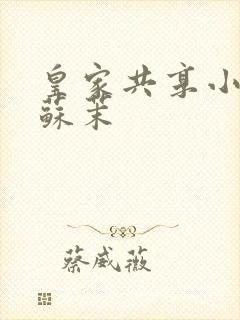 皇家共享小
蘇茉
蔡威薇